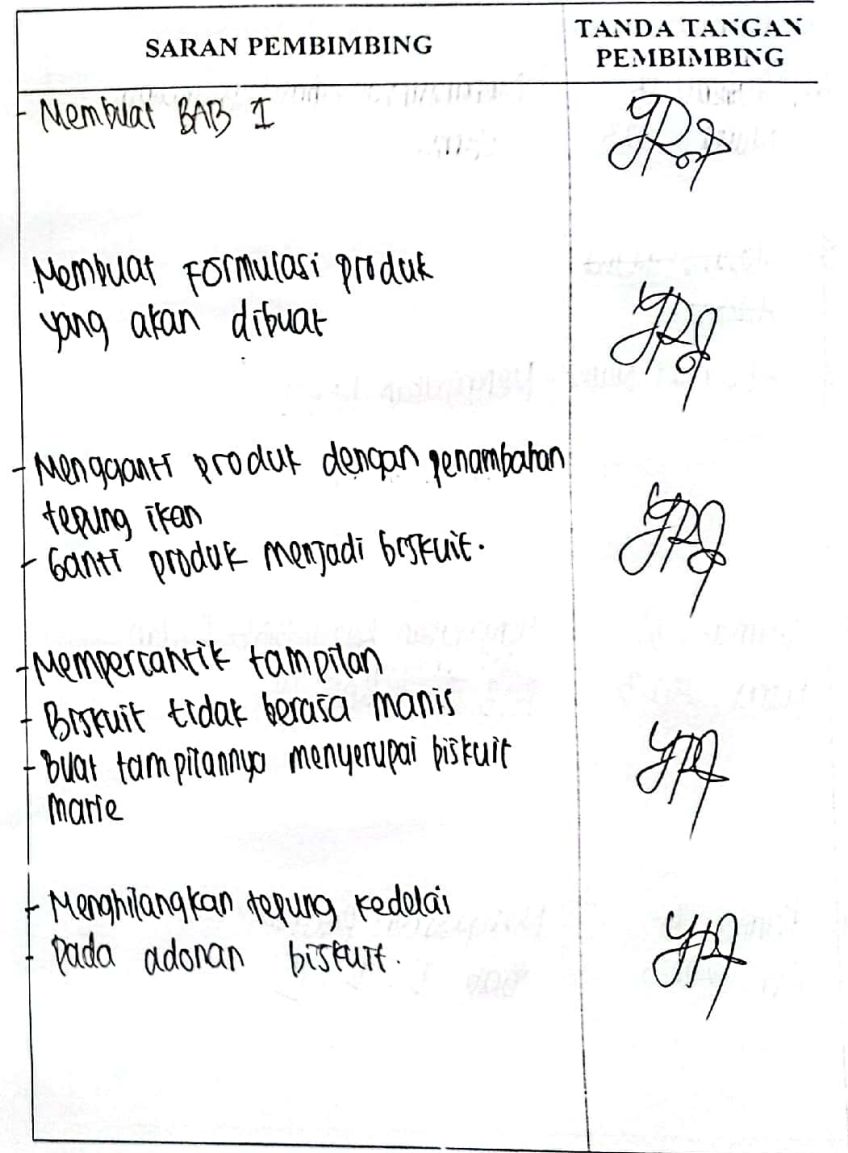 SARAN PEMBIMBING
TANDA TANGAN
PEMBIMBING
- Membuat BAB I
Membuat Formulasi produk
yang akan dibuat
- Mengganti produk dengan penambahan
tepung ikan
- Ganti produk menjadi biskuit.
- Mempercantik tampilan
- Biskuit tidak berasa manis
- Buat tampilannya menyerupai biskuit
marie
- Menghilangkan tepung kedelai
- pada adonan biskuit.